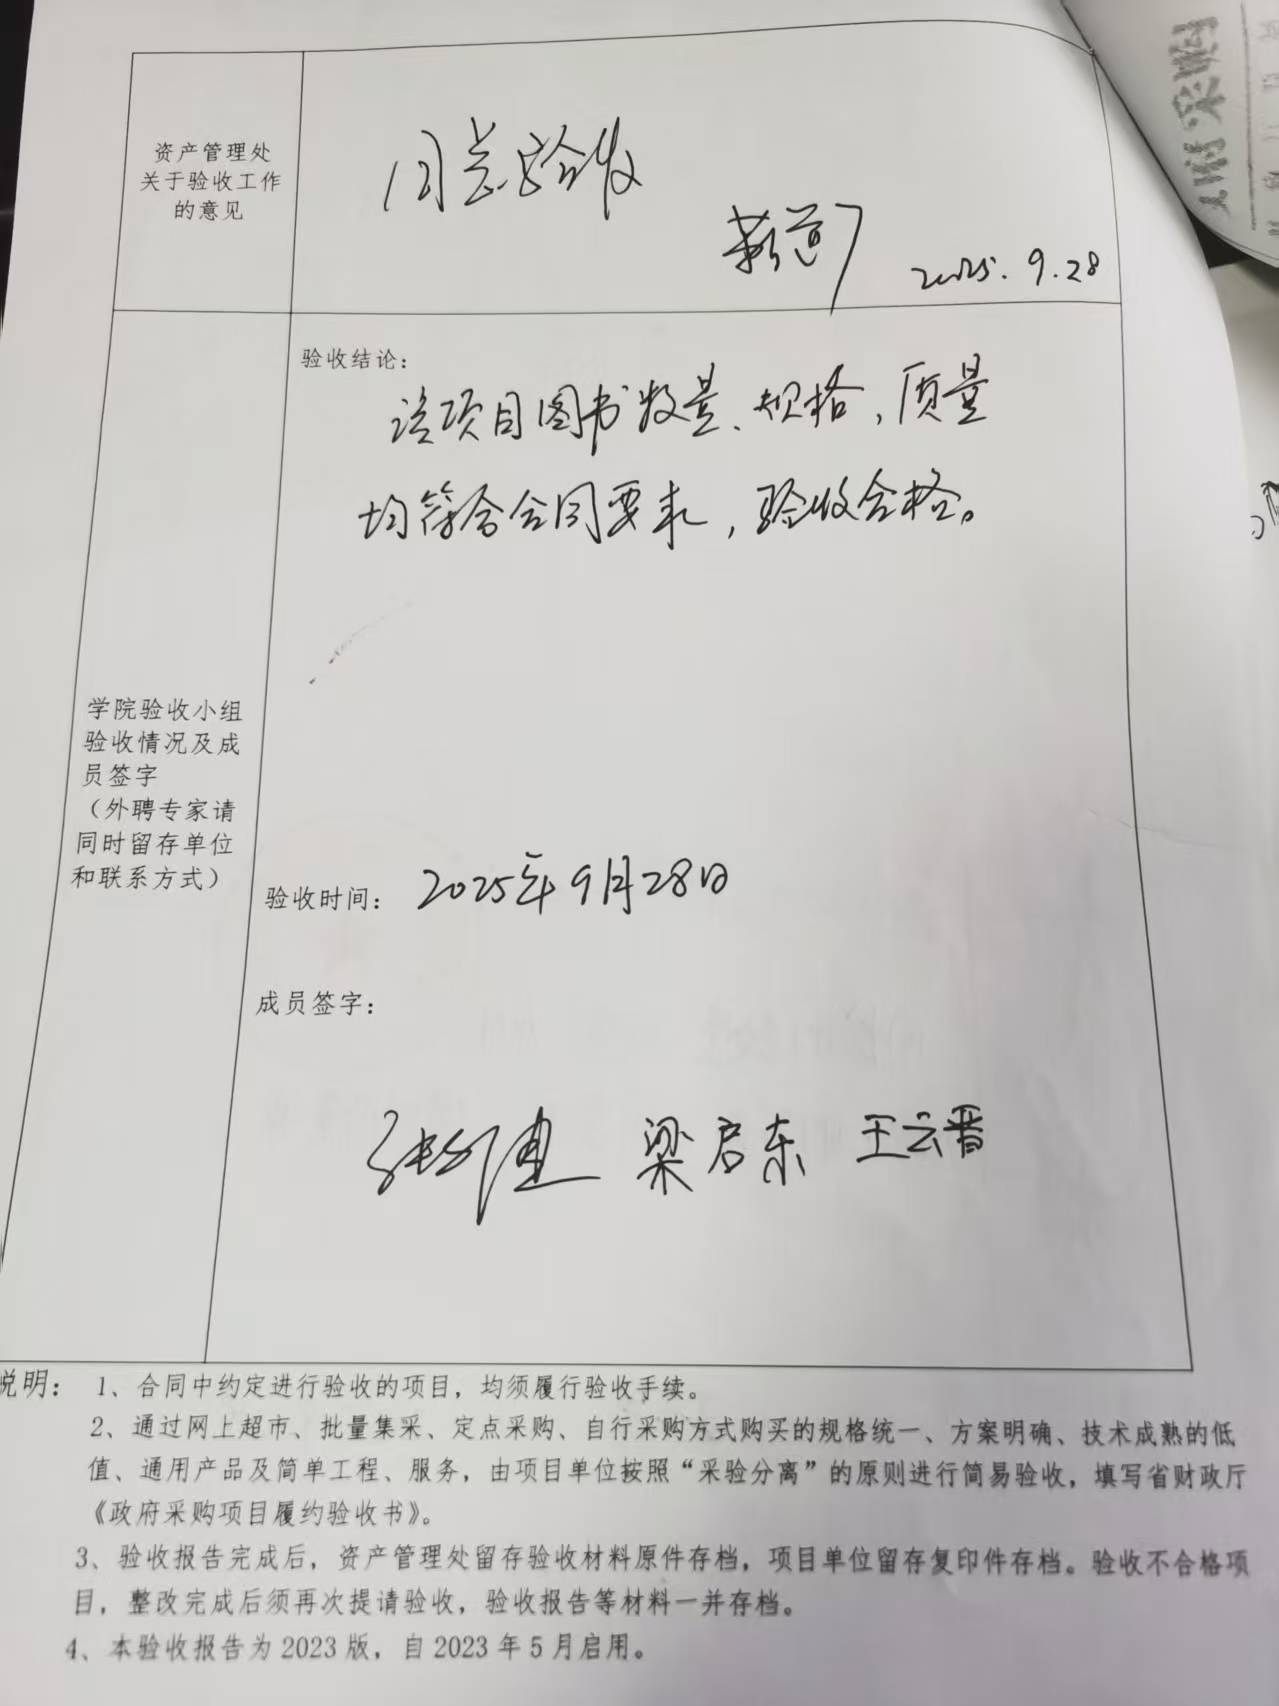 资产管理处
关于验收工作
的意见
同意验收
2025.9.28
验收结论：
该项目图书数量、规格，质量
均符合合同要求，验收合格。
学院验收小组
验收情况及成
员签字
（外聘专家请
同时留存单位
和联系方式）
验收时间： 2025年9月28日
成员签字：
梁启东 王云晋
说明： 1、合同中约定进行验收的项目，均须履行验收手续。
2、通过网上超市、批量集采、定点采购、自行采购方式购买的规格统一、方案明确、技术成熟的低
值、通用产品及简单工程、服务，由项目单位按照“采验分离”的原则进行简易验收，填写省财政厅
《政府采购项目履约验收书》。
3、验收报告完成后，资产管理处留存验收材料原件存档，项目单位留存复印件存档。验收不合格项
目，整改完成后须再次提请验收，验收报告等材料一并存档。
4、本验收报告为 2023 版，自 2023 年 5 月启用。